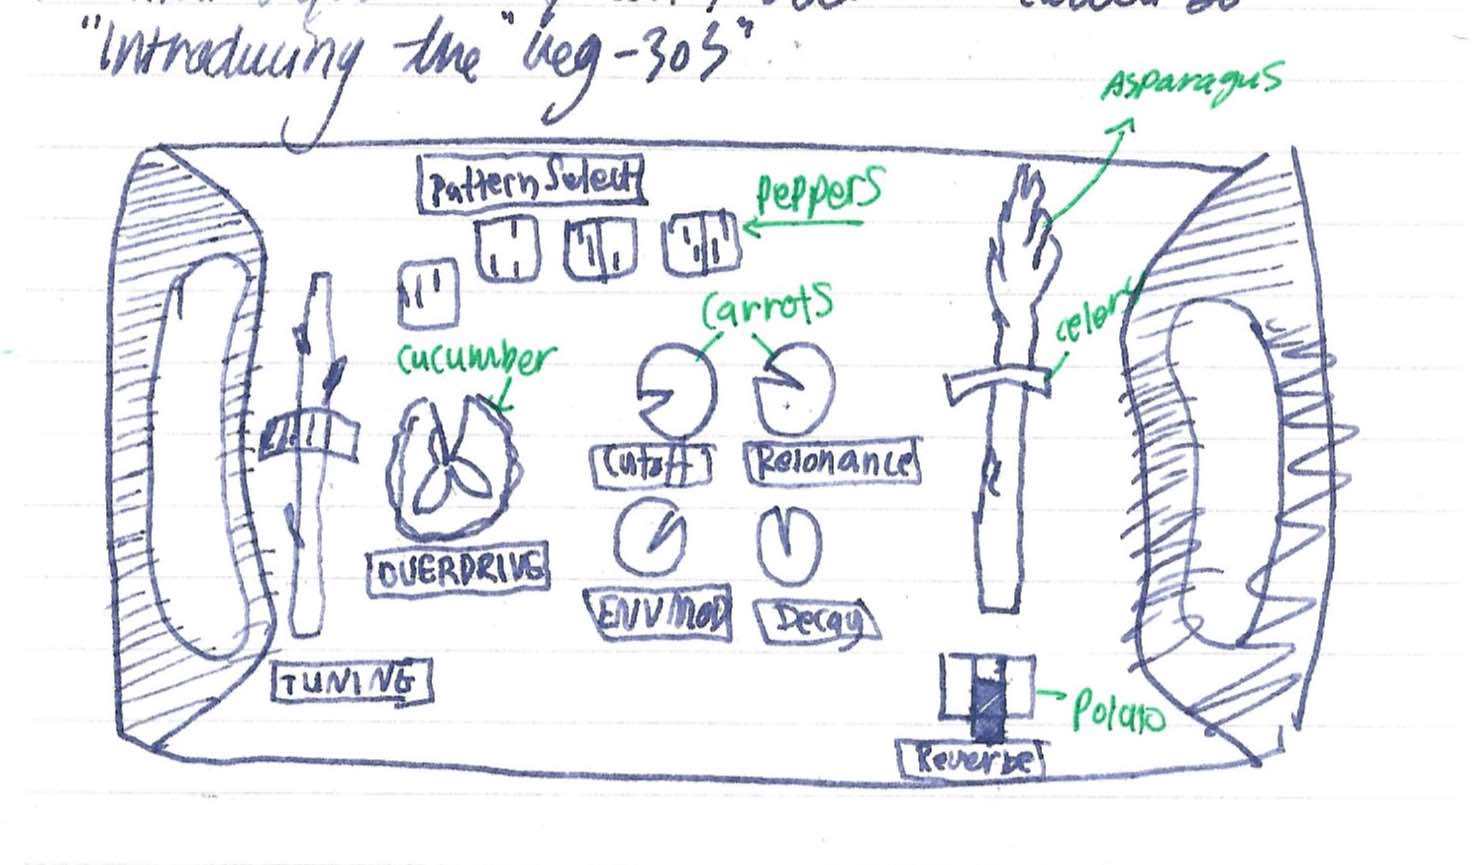 "Introducing the "Veg-303"
Asparagus
Pattern Select
Peppers
Carrots
celery
cucumber
Cutoff
Resonance
OVERDRIVE
ENV MOD
Decay
TUNING
Potato
Reverbe